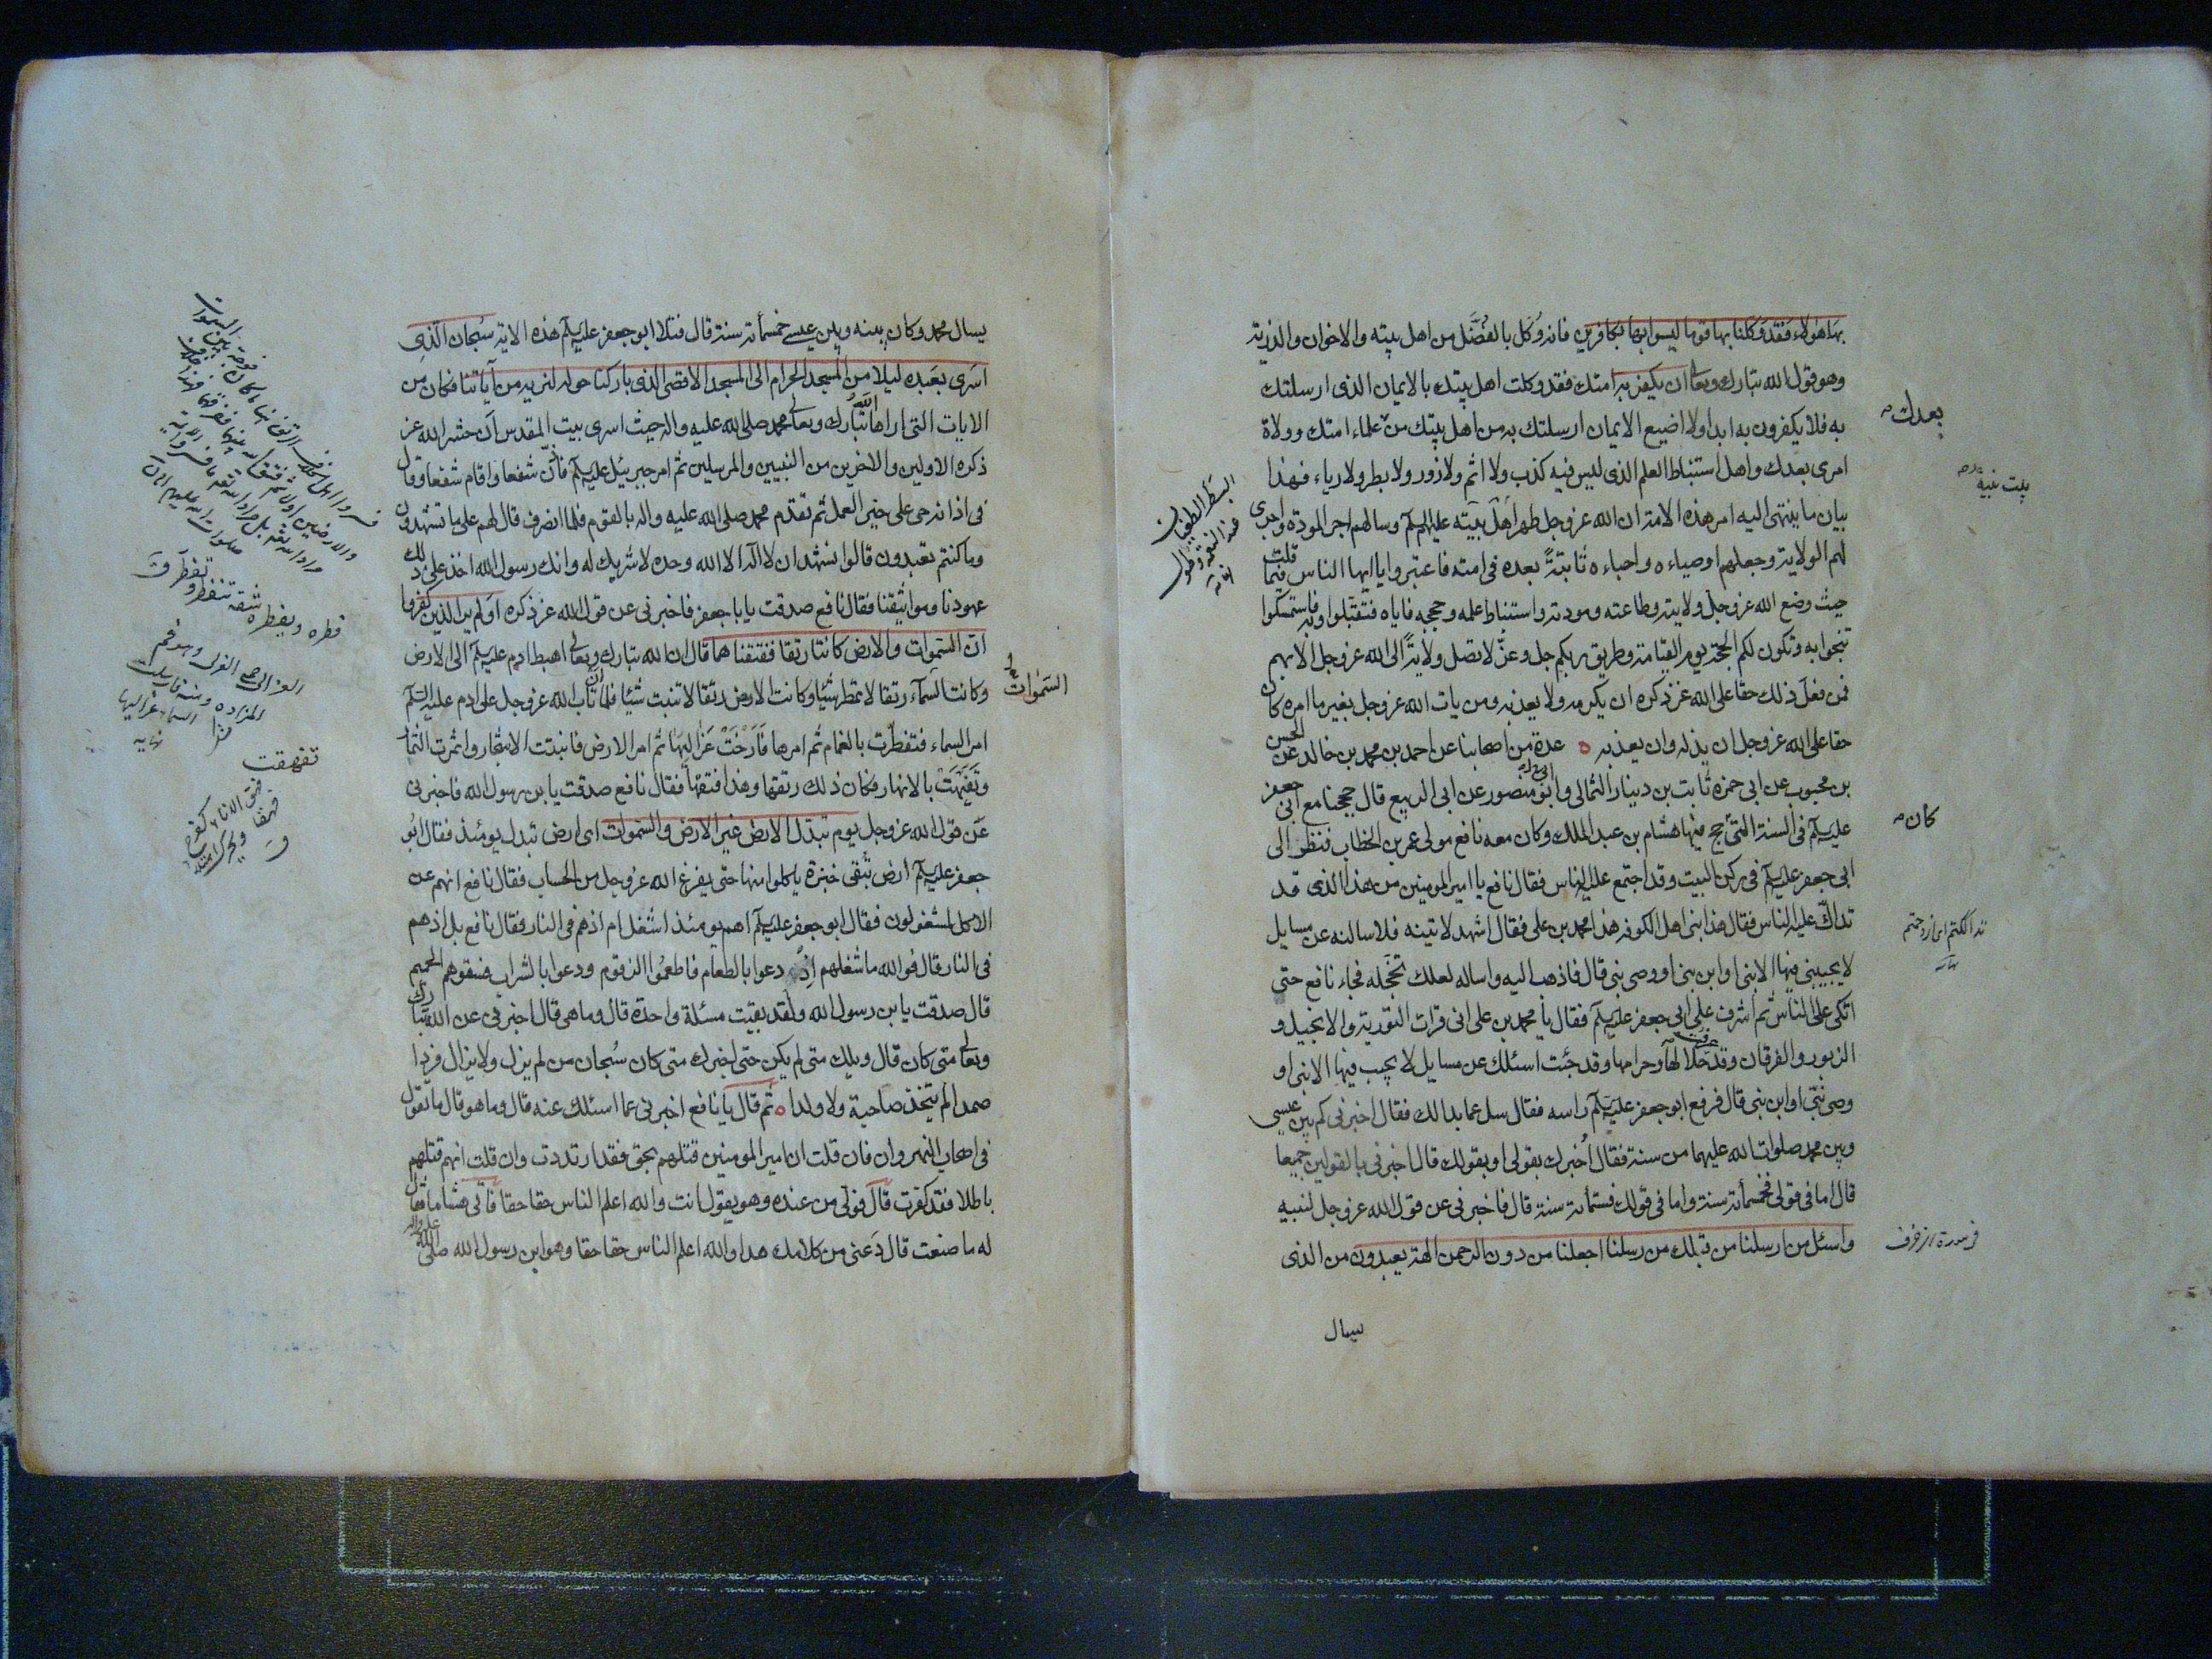 بها هؤلاء فقد وكلنا بها قوما ليسوا بها بكافرين فانه وُكّل بالفُضَّل من اهل بيته والاخوان والذرية
وهو قول الله تبارك وتعالى ان يكفر به امتك فقد وكلت اهل بيتك بالايمان الذى ارسلتك
به فلا يكفرون به ابدا ولا اضيع الايمان ارسلتك به من اهل بيتك من علماء امتك وولاة
امرى بعدك واهل استنباط العلم الذى ليس فيه كذب ولا اثم ولا زور ولا بطر ولا رياء فهذا
بيان ما ينتهى اليه امر هذه الامة ان الله عز وجل طهر اهل بيته عليهم السلم وسالهم اجر المودة واجرى
لهم الولاية وجعلهم اوصياءه واحباءه ثابتةً بعده فى امته فاعتبروا ايها الناس فيما قلت
حيث وضع الله عز وجل ولايته وطاعته ومودته واستنباط علمه وحججه فاياه فتقبلوا وبه فاستمسكوا
تنجوا به وتكون لكم الحجة يوم القيامة وطريق ربكم جل وعز لا تصل ولايةً الى الله عز وجل الا بهم
فمن فعل ذلك حقا على الله عز ذكره ان يكرمه ولا يعذبه ومن يات الله عز وجل بغير ما امره كان
حقا على الله عز وجل ان يذله وان يعذبه ه عدة من اصحابنا عن احمد بن محمد بن خالد عن الحسن
بن محبوب عن ابى حمزه ثابت بن دينار الثمالى وابو منصور عن ابى الربيع قال حججنا مع ابى جعفر
عليه السلم فى السنة التى حج فيها هشام بن عبد الملك وكان معه نافع مولى عمر بن الخطاب فنظر الى
ابى جعفر عليه السلم فى ركن البيت وقد اجتمع عليه الناس فقال نافع يا امير المومنين من هذا الذى قد
تداكّ عليه الناس فقال هذا نبى اهل الكوفه هذا محمد بن على فقال اشهد لاتينه فلاسالنه عن مسايل
لا يجيبنى فيها الا نبى او ابن نبى او وصى نبى قال فاذهب اليه واساله لعلك تخجله فجاء نافع حتى
اتكى على الناس ثم اشرف على ابى جعفر عليه السلم فقال يا محمد بن على انى قرات التورية والانجيل و
الزبور والفرقان وقد عرفت حلالها وحرامها وقد جئت اسئلك عن مسايل لا يجيب فيها الا نبى او
وصى نبى او ابن نبى قال فرفع ابو جعفر عليه السلم راسه فقال سل عما بدا لك فقال اخبرنى كم بين عيسى
وبين محمد صلوات الله عليهما من سنة فقال أخبرك بقولى او بقولك قال اخبرنى بالقولين جميعا
قال اما فى قولى فخمسمأة سنة واما فى قولك فستمأة سنة قال فاخبرنى عن قول الله عز وجل لنبيه
واسئل من ارسلنا من قبلك من رسلنا اجعلنا من دون الرحمن الهة يعبدون من الذى
يسال
بعدك
بيت نبيه
كان
تداككتم اى ازدحمتم
نهاية
فى سورة الزخرف
البطر الطغيان
عند النعمة وطول
يسال محمد وكان بينه وبين عيسى خمسمأة سنة قال فتلا ابو جعفر عليه السلم هذه الاية سُبحان الذى
اسرى بعبده ليلا من المسجد الحرام الى المسجد الاقصى الذى باركنا حوله لنريه من آياتنا فكان من
الايات التى اراها الله تبارك وتعالى محمد صلى الله عليه واله حيث اسرى بيت المقدس ان حشر الله عز
ذكره الاولين والاخرين من النبيين والمرسلين ثم امر جبرئيل عليه السلم فأذّن شفعا واقام شفعا وقال
فى اذانه حى على خير العمل ثم تقدم محمد صلى الله عليه واله بالقوم فلما انصرف قال لهم على ما تشهدون
وما كنتم تعبدون قالوا نشهد ان لا اله الا الله وحده لا شريك له وانك رسول الله اخذ على ذلك
عهودنا ومواثيقنا فقال نافع صدقت يابا جعفر فاخبرنى عن قول الله عز ذكره اولم ير الذين كفروا
ان السموات والارض كانتا رتقا ففتقناهما قال ان الله تبارك وتعالى اهبط ادم عليه السلم الى الارض
وكانت السماء رتقا لا تمطر شيئا وكانت الارض رتقا لا تنبت شيئا فلما ان تاب الله عز وجل على ادم عليه السلم
امر السماء فتفطرت بالغمام ثم امرها فَاَرْخَتْ عَزالِيَها ثم امر الارض فانبتت الاشجار واثمرت الثمار
وتَفَيْهَقَتْ بالانهار فكان ذلك رتقها وهذا فتقها فقال نافع صدقت يابن رسول الله فاخبرنى
عن قول الله عز وجل يوم تبدل الارض غير الارض والسموات اى ارض تبدل يومئذ فقال ابو
جعفر عليه السلم أرض تبقى خبزة ياكلوا منها حتى يفرغ الله عز وجل من الحساب فقال نافع انهم عن
الاكل لمشغولون فقال ابو جعفر عليه السلم اهم يومئذ اشغل ام اذ هم فى النار فقال نافع بل اذ هم
فى النار قال فوالله ما شغلهم اذ دعوا بالطعام فاطعموا الزقوم ودعوا بالشراب فسقوهم الحميم
قال صدقت يابن رسول الله ولقد بقيت مسئلة واحدة قال وما هى قال اخبرنى عن الله تبارك
وتعالى متى كان قال ويلك متى لم يكن حتى اخبرك متى كان سُبحان من لم يزل ولا يزال فردا
صمدا لم يتخذ صاحبة ولا ولدا ه ثم قال يا نافع اخبرنى عما اسئلك عنه قال وما هو قال ما تقول
فى اصحاب النهروان فان قلت ان امير المومنين قتلهم بحق فقد ارتددت وان قلت انهم قتلهم
باطلا فقد كفرت قال فولى من عنده وهو يقول انت والله اعلم الناس حقا حقا فاتى هشاما فقال
له ما صنعت قال دَعنى من كلامك هذا والله اعلم الناس حقا حقا وهو ابن رسول الله صلى الله عليه واله
السموات
تفيهقت